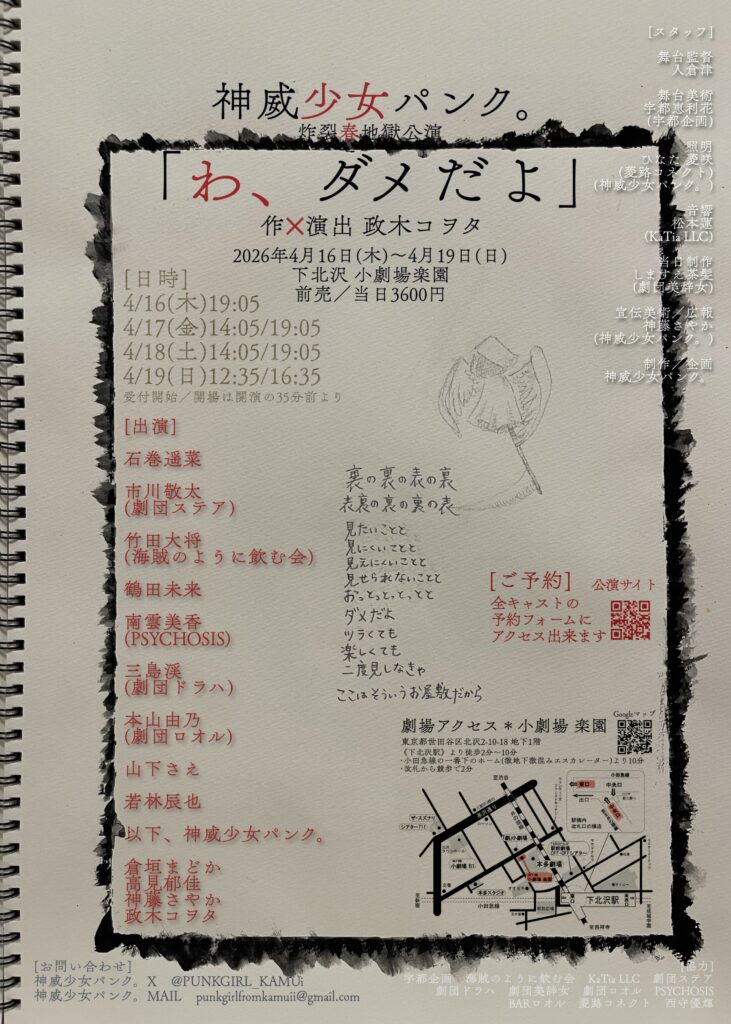 神威少女パンク。
炸裂春地獄公演
「わ、ダメだよ」
作×演出 政木コヲタ
2026年4月16日(木)〜4月19日(日)
下北沢 小劇場楽園
前売／当日3600円
[日時]
4/16(木)19:05
4/17(金)14:05/19:05
4/18(土)14:05/19:05
4/19(日)12:35/16:35
受付開始／開場は開演の35分前より
[出演]
石巻遥菜
市川敬太
(劇団ステア)
竹田大将
(海賊のように飲む会)
鶴田未来
南雲美香
(PSYCHOSIS)
三島渓
(劇団ドラハ)
本山由乃
(劇団ロオル)
山下さえ
若林辰也
以下、神威少女パンク。
倉垣まどか
高見郁佳
神藤さやか
政木コヲタ
[スタッフ]
舞台監督
入倉津
舞台美術
宇都恵利花
(宇都企画)
照明
ひなた菱咲
(菱路コネクト)
(神威少女パンク。)
音響
松本蓮
(KaTia LLC)
当日制作
しますえ茶髪
(劇団美辞女)
宣伝美術／広報
神藤さやか
(神威少女パンク。)
制作／企画
神威少女パンク。
裏の裏の表の裏
表裏の裏の裏の表
見たいことと
見にくいことと
見えにくいことと
見せられないことと
おっとっとっとっと
ダメだよ
ツラくても
楽しくても
二度見しなきゃ
ここはそういうお屋敷だから
[ご予約] 公演サイト
全キャストの
予約フォームに
アクセス出来ます
Googleマップ
劇場アクセス＊小劇場 楽園
東京都世田谷区北沢2-10-18 地下1階
《下北沢駅》より徒歩2分〜10分
・小田急線の一番下のホーム(激地下激混みエスカレーター)より10分
・改札から競歩で2分
至渋谷
小田急線
東口
中央口
出口
駅構内
改札口の構造
ザ・スズナリ
シアター711
「劇」小劇場
駅前劇場
OFF・OFFシアター
小劇場 B1
本多劇場
小劇場 楽園
本多スタジオ
小田急線
下北沢駅
至新宿
至吉祥寺
至成城学園
[お問い合わせ]
神威少女パンク。X @PUNKGIRL_KAMUi
神威少女パンク。MAIL punkgirlfromkamuii@gmail.com
[協力]
宇都企画 海賊のように飲む会 KaTia LLC 劇団ステア
劇団ドラハ 劇団美辞女 劇団ロオル PSYCHOSIS
BARロオル 菱路コネクト 西守優輝